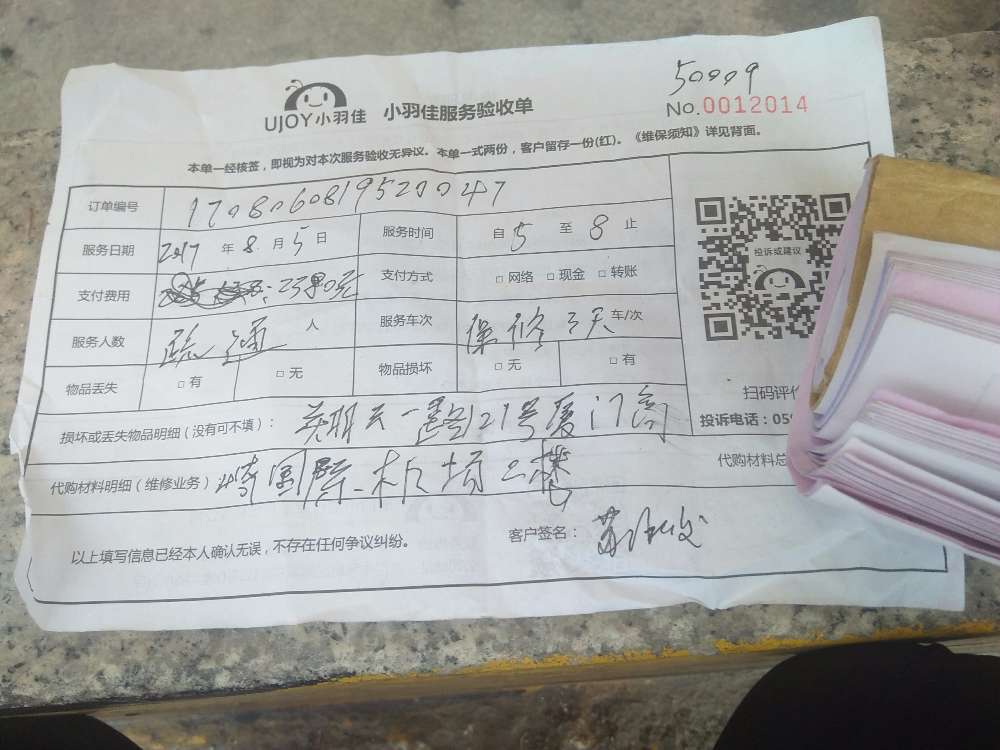 50009
UJOY小羽佳 小羽佳服务验收单 No.0012014
本单一经核签，即视为对本次服务验收无异议。本单一式两份，客户留存一份(红)。《维保须知》详见背面。
订单编号
服务日期 2017 年 8 月 5 日 服务时间 自 5 至 8 止
支付费用 支付方式 □ 网络 □ 现金 □ 转账
服务人数 疏通 人 服务车次 保修3天 车/次
物品丢失 □ 有 □ 无 物品损坏 □ 无 □ 有
投诉或建议
扫码评价
投诉电话：05
损坏或丢失物品明细（没有可不填）： 一路21号厦门
代购材料明细（维修业务） 代购材料总
以上填写信息已经本人确认无误，不存在任何争议纠纷。 客户签名：